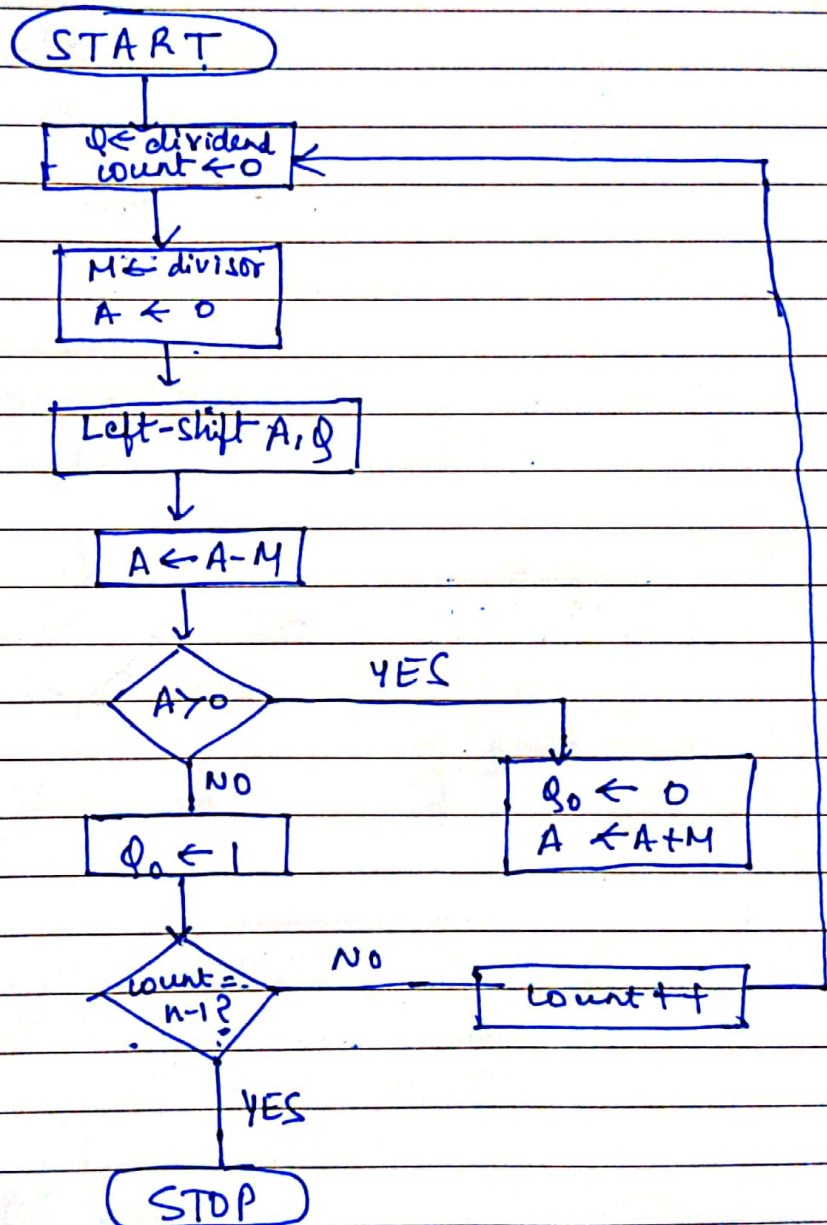 START
Q ← dividend
count ← 0
M ← divisor
A ← 0
Left-shift A, Q
A ← A-M
A>0
YES
NO
Q₀ ← 0
A ← A+M
Q₀ ← 1
count =
n-1?
NO
count ++
YES
STOP